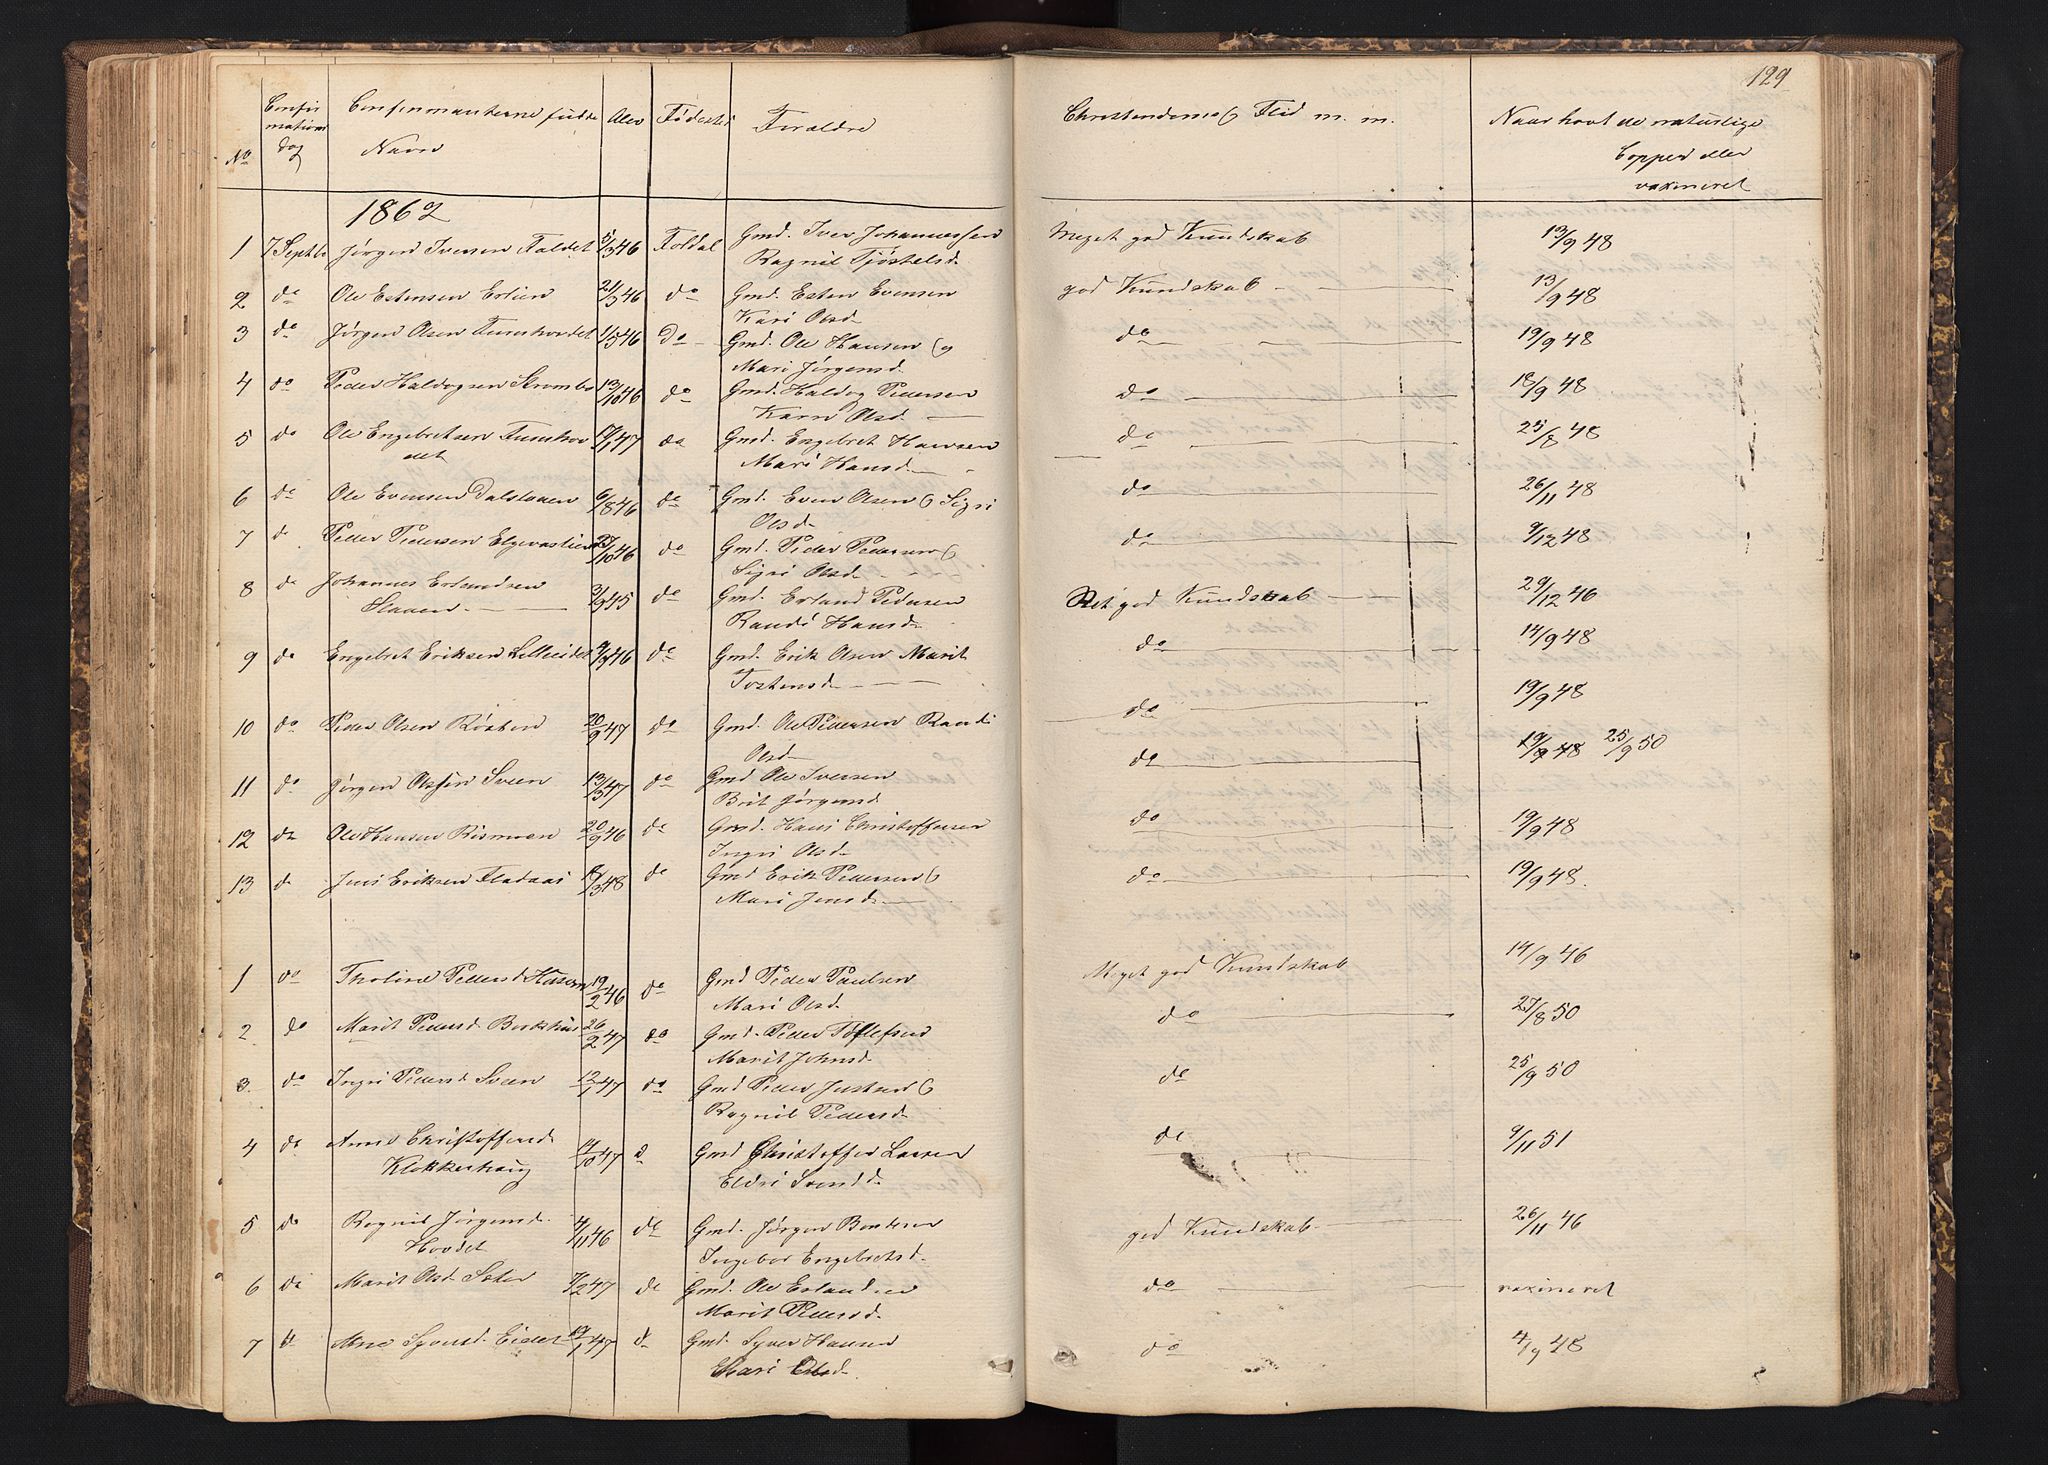 129
No
Confir
mations
dag
Confirmanternes fulde
Navn
Alder
Fødested
Foræld­re
Christendoms & Flid m. m.
Naar havt de naturlige
Copper eller
vaxineret
1862
1 7 Septbr Jørgen Iversen Faldet 5/3 46 Foldal Gmd. Iver Johannessen Meget god Kundskab 13/9 48
Ragnil Tjøstelsd.
2 do Ole Estensen Erlien 21/3 46 do Gmd. Esten Evensen god Kundskab 13/9 48
Kari Olsd.
3 do Jørgen Olsen Furuhovdet 1/5 46 Do Gmd. Ole Hansen og do 19/9 48
Mari Jørgensd.
4 do Peder Haldogsen Strombo 13/10 46 do Gmd. Haldog Pedersen do 18/9 48
Karn Olsd.
5 do Ole Engebretsen Furuhov 17/1 47 do Gmd. Engebret Hansen do 25/8 48
det Mari Hansd.
6 do Ole Evensen Dalsloen 6/8 46 do Gmd. Even Olsen & Sigri do 26/11 48
Olsd.
7 do Peder Pedersen 27/10 46 do Gmd. Peder Pedersen & do 9/12 48
Sigri Olsd.
8 do Johannes Erlandsen 3/9 45 do Gmd. Erland Pedersen Ret god Kundskab 29/12 46
Slaaen Randi Hansd.
9 do Engebret Eriksen 9/9 46 do Gmd. Erik Olsen Marit do 14/9 48
Tostensd.
10 do Peder Olsen Røsten 20/9 47 do Gmd. Ole Pedersen Randi do 19/9 48
Olsd.
11 do Jørgen Olsen Sveen 13/3 47 do Gmd Ole Iversen do 19/9 48 25/9 50
Brit Jørgensd.
12 do Ole Hansen Rismoen 20/9 46 do Gmd. Hans Christoffersen do 19/9 48
Ingri Olsd.
13 do Jens Eriksen Fladaas 18/3 48 do Gmd Erik Pedersen & do 19/9 48.
Mari Jensd.
1 do Tholine Pedersd Husom 19/2 46 do Gmd Peder Paulsen Meget god Kundskab 14/9 46
Mari Olsd.
2 do Marit Pedersd Borkhus 26/2 47 do Gmd. Peder Tollefsen do 27/8 50
Marit Johnsd.
3. do Ingri Pedersd. Sveen 12/1 47 do Gmd Peder Justsen & do 25/9 50
Ragnil Pedersd.
4 do Anne Christoffersd. 14/10 47 d Gmd Christoffer Larsen do 9/11 51
Klokkerhaug Eldri Svendsd.
5 do Ragnil Jørgensd. 4/11 46 do Gmd. Jørgen Bentsen god Kundskab 26/11 46
Hovdet Ingebor Engebretsd.
6 do Marit Olsd Sæter 7/2 47 do Gmd. Ole Erlandsen do vaxineret
Marit Pedersd.
7 do Ane Syversd. Eidet 19/1 47 d Gmd. Syver Hansen do 4/9 48
Mari Olsd.